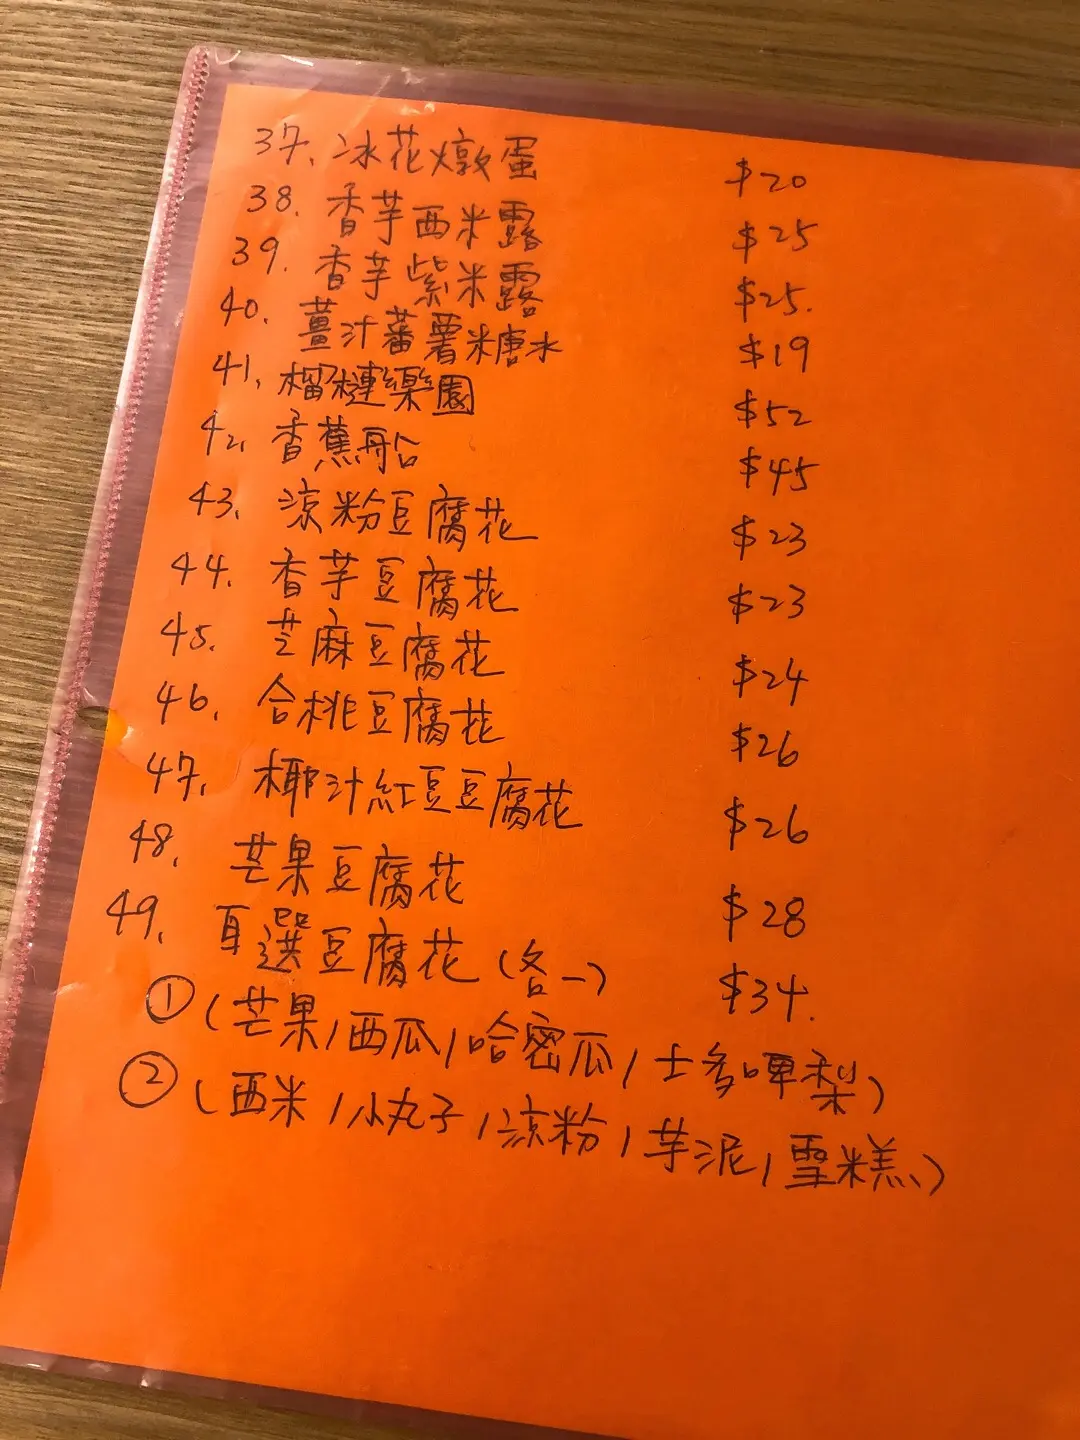 37. 冰花燉蛋 $20
38. 香芋西米露 $25
39. 香芋紫米露 $25.
40. 薑汁蕃薯糖水 $19
41. 榴槤樂園 $52
42. 香蕉船 $45
43. 涼粉豆腐花 $23
44. 香芋豆腐花 $23
45. 芝麻豆腐花 $24
46. 合桃豆腐花 $26
47. 椰汁紅豆豆腐花 $26
48. 芒果豆腐花 $28
49. 自選豆腐花 (各一) $34.
① (芒果/西瓜/哈密瓜/士多啤梨)
② (西米/小丸子/涼粉/芋泥/雪糕)